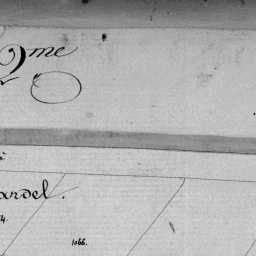 2me
ardel.
4.
1066.